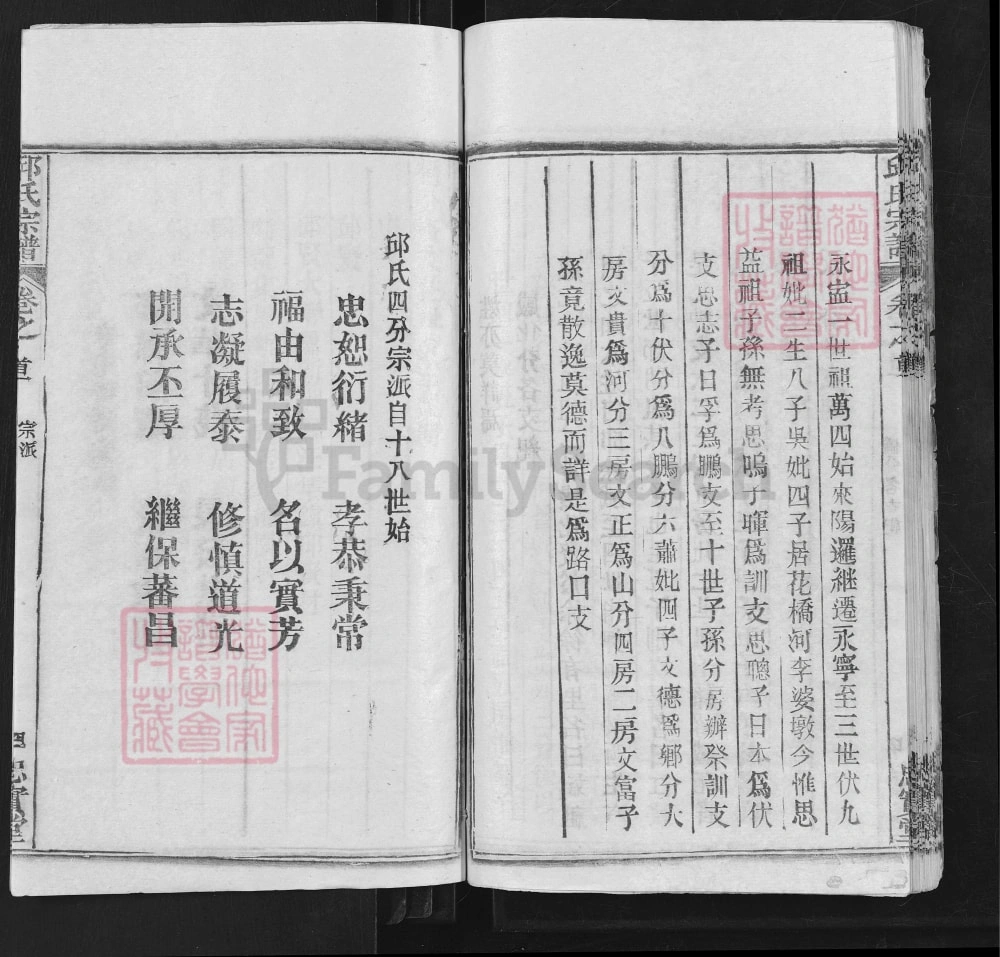 永寍一世祖萬四始來陽邏繼遷永寧至三世伏九
祖妣二生八子吳妣四子居花橋河李婆墩今惟思
益祖子孫無考思鳴子暉爲訓支思聰子日本爲伏
支思志子日孚爲鵬支至十世子孫分房辦祭訓支
分爲十伏分爲八鵬分六蕭妣四子文德爲鄉分大
房文貴爲河分三房文正爲山分四房二房文富子
孫竟散逸莫德而詳是爲路口支
邱氏宗譜
邱氏四分宗派自十八世始
忠恕衍緒 孝恭秉常
福由和致 名以實芳
志凝履泰 修慎道光
開承丕厚 繼保蕃昌
邱氏宗譜 卷之首 宗派 四 忠實堂
FamilySearch